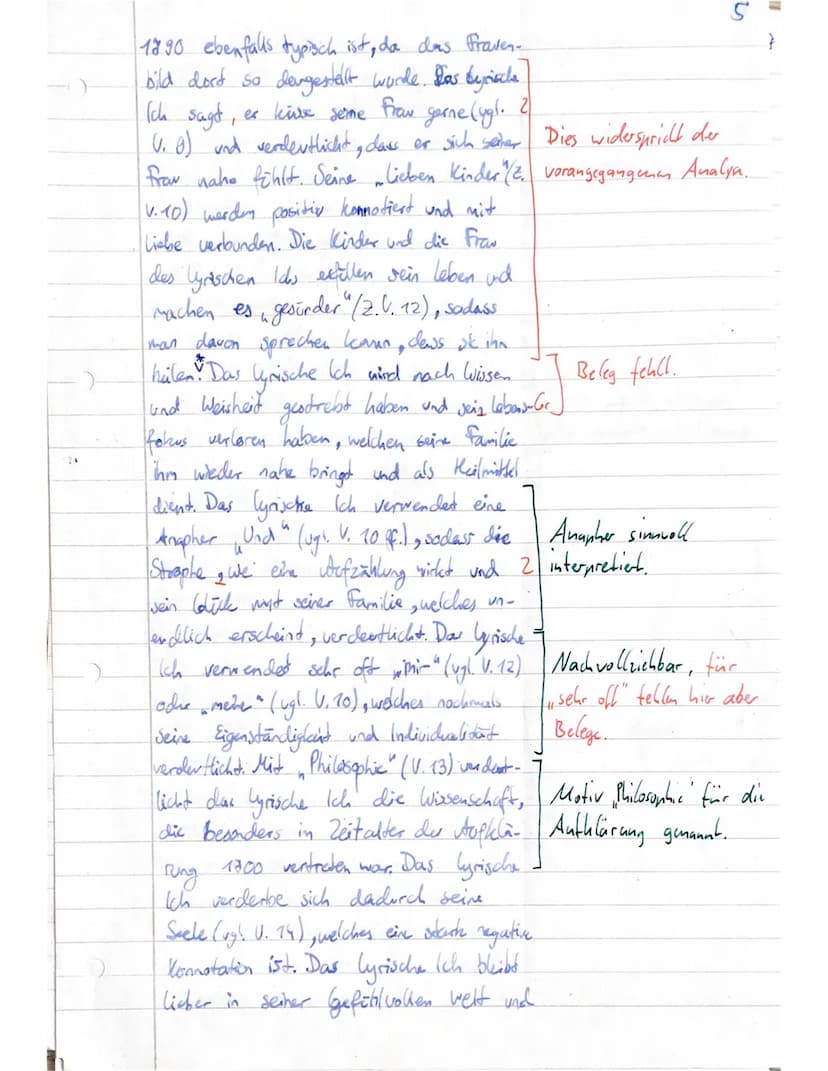 5
1790 ebenfalls typisch ist, da das Frauen-
bild dort so dargestellt wurde. Das lyrische
Ich sagt, er küsse seine Frau gerne (vgl. 2
V. 9) und verdeutlicht, dass er sich seiner
Frau nahe fühlt. Seine „lieben Kinder“ (Z.
V. 10) werden positiv konnotiert und mit
Liebe verbunden. Die Kinder und die Frau
des lyrischen Ichs erfüllen sein Leben und
machen es „gesünder“ (Z. V. 12), sodass
man davon sprechen kann, dass sie ihn
heilen.* Das lyrische Ich wird nach Wissen
und Weisheit gestrebt haben und sein Lebens- Gr
fokus verloren haben, welchen seine Familie
ihm wieder nahe bringt und als Heilmittel
dient. Das lyrische Ich verwendet eine
Anapher „Und“ (vgl. V. 10 ff.), sodass die
Strophe, wie eine Aufzählung wirkt und 2
sein Glück mit seiner Familie, welches un-
endlich erscheint, verdeutlicht. Das lyrische
Ich verwendet sehr oft „mir“ (vgl. V. 12)
oder „meine“ (vgl. V. 10), welches nochmals
seine Eigenständigkeit und Individualität
verdeutlicht. Mit „Philosophie“ (V. 13) verdeut-
licht das lyrische Ich die Wissenschaft,
die besonders in Zeitalter der Aufklä-
rung 1700 vertreten war. Das lyrische
Ich verderbe sich dadurch seine
Seele (vgl. V. 14), welches eine starke negative
Konnotation ist. Das lyrische Ich bleibt
lieber in seiner Gefühlvollen Welt und
Dies widerspricht der
vorangegangenen Analyse.
Beleg fehlt.
Anapher sinnvoll
interpretiert.
Nachvollziehbar, für
„sehr oft“ fehlen hier aber
Belege.
Motiv „Philosophie“ für die
Aufklärung genannt.